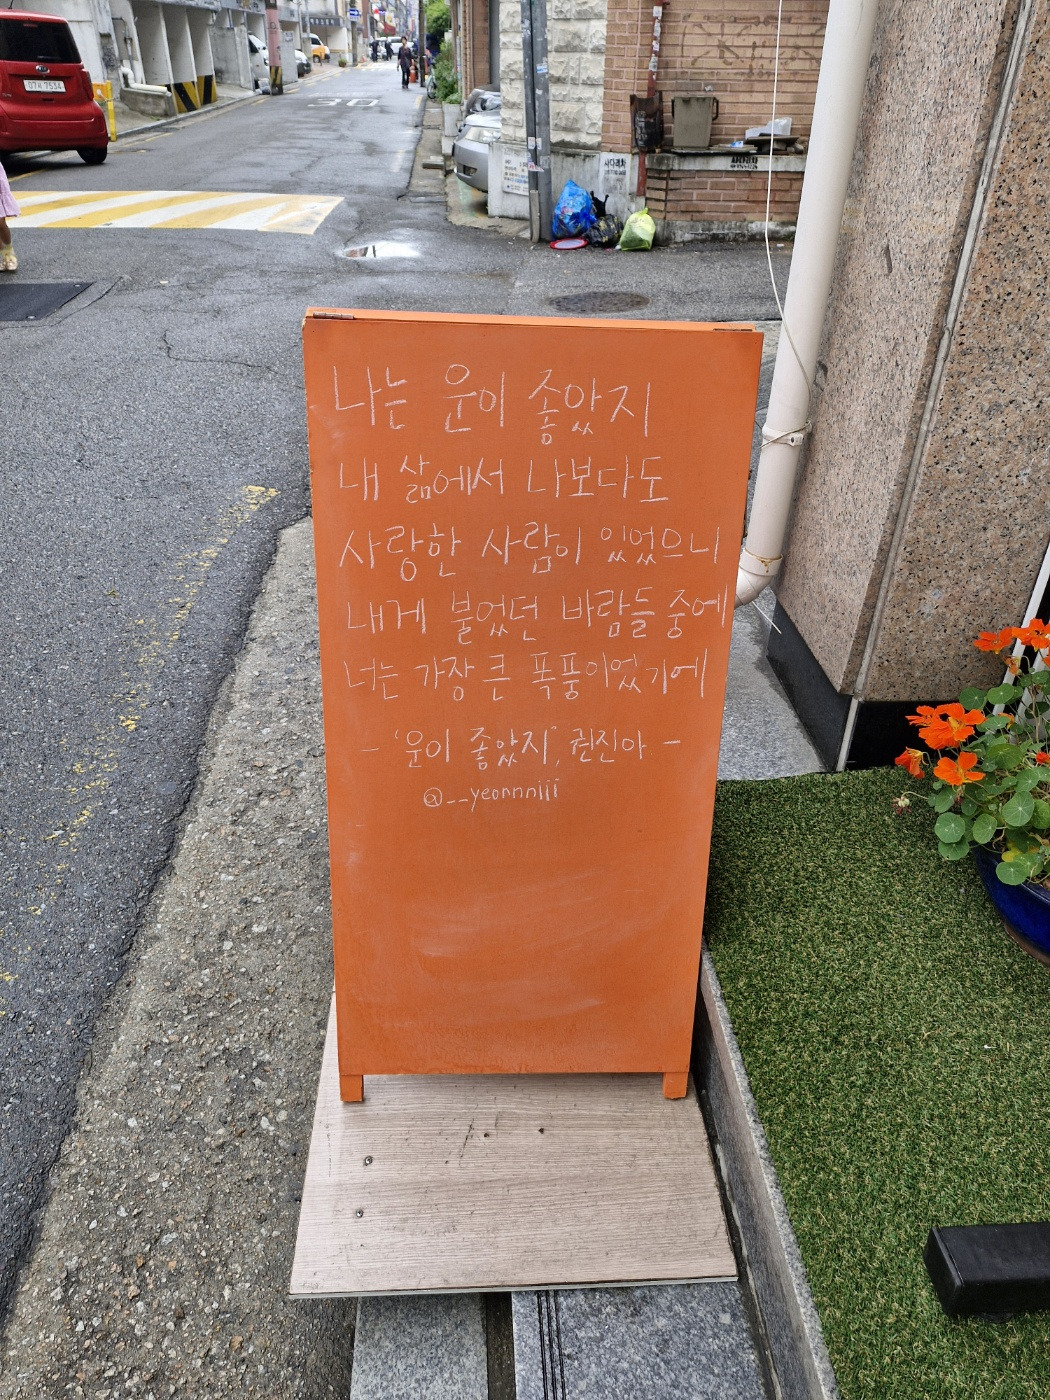 나는 운이 좋았지
내 삶에서 나보다도
사랑한 사람이 있었으니
내게 불었던 바람들 중에
너는 가장 큰 폭풍이었기에
- '운이 좋았지", 권진아 -
@__yeonnniii
30
사다리차